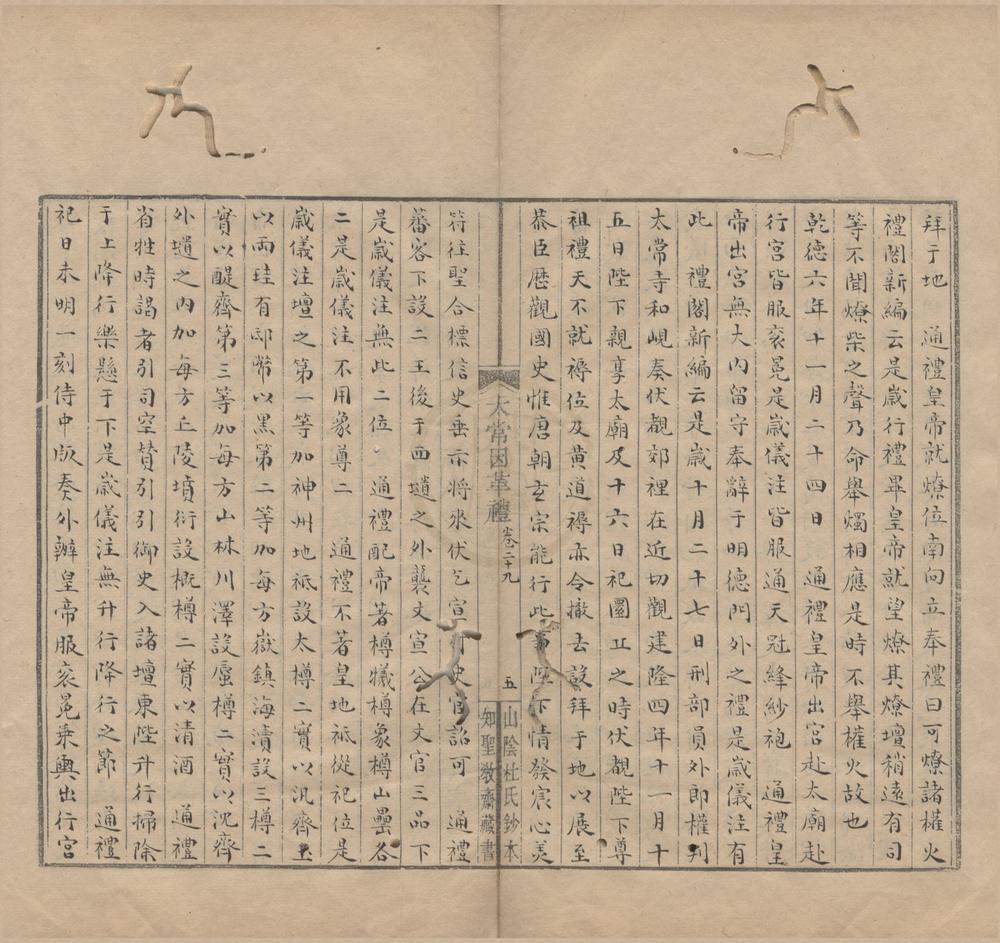 拜于地　通禮皇帝就燎位南向立奉禮曰可燎諸權火
禮閣新編云是歲行禮畢皇帝就望燎其燎壇稍遠有司
等不聞燎柴之聲乃命舉燭相應是時不舉權火故也
乾德六年十一月二十四日　通禮皇帝出宮赴太廟赴
行宮皆服衮冕是歲儀注皆服通天冠絳紗袍　通禮皇
帝出宮無大內留守奉辭于明德門外之禮是歲儀注有
此　禮閣新編云是歲十月二十七日刑部員外郎權判
太常寺和峴奏伏覩郊禋在近切觀建隆四年十一月十
五日陛下親享太廟及十六日祀圜丘之時伏覩陛下尊
祖禮天不就褥位及黄道褥亦令撤去設拜于地以展至
恭臣歴觀國史惟唐朝玄宗能行此事陛下情發宸心美
太常因革禮 卷二十九
五
山陰杜氏鈔本
知聖教齋藏書
符往聖合標信史垂示將來伏乞宣付史官詔可　通禮
蕃客下設二王後于西壝之外襲文宣公在文官三品下
是歲儀注無此二位　通禮配帝著樽犧樽象樽山罍各
二是歲儀注不用象尊二　通禮不著皇地祇從祀位是
歲儀注壇之第一等加神州地祇設太樽二實以汎齊玉
以兩珪有邸幣以黑第二等加每方嶽鎮海瀆設三樽二
實以醍齊第三等加每方山林川澤設蜃樽二實以沈齊
外壝之內加每方丘陵墳衍設概樽二實以清酒　通禮
省牲時謁者引司空贊引引御史入諸壇東陛升行掃除
于上降行樂懸于下是歲儀注無升行降行之節　通禮
祀日未明一刻侍中版奏外辦皇帝服衮冕乗輿出行宮